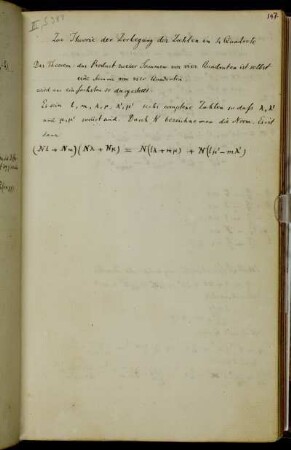 147.
Zur Theorie der Zerlegung der Zahlen in 4 Quadrate
Das Theorem das Product zweier Summen von vier Quadraten ist selbst
eine Summe von vier Quadraten
wird am einfachsten so dargestellt:
Es sein l, m, λ, μ, λ', μ' sechs complexe Zahlen so dass λ, λ'
und μ, μ' sociirt sind. Durch N bezeichne man die Norm. Es ist
dann
(Nl + Nm)(Nλ + Nμ) = N(lλ + mμ) + N(lμ' − mλ')